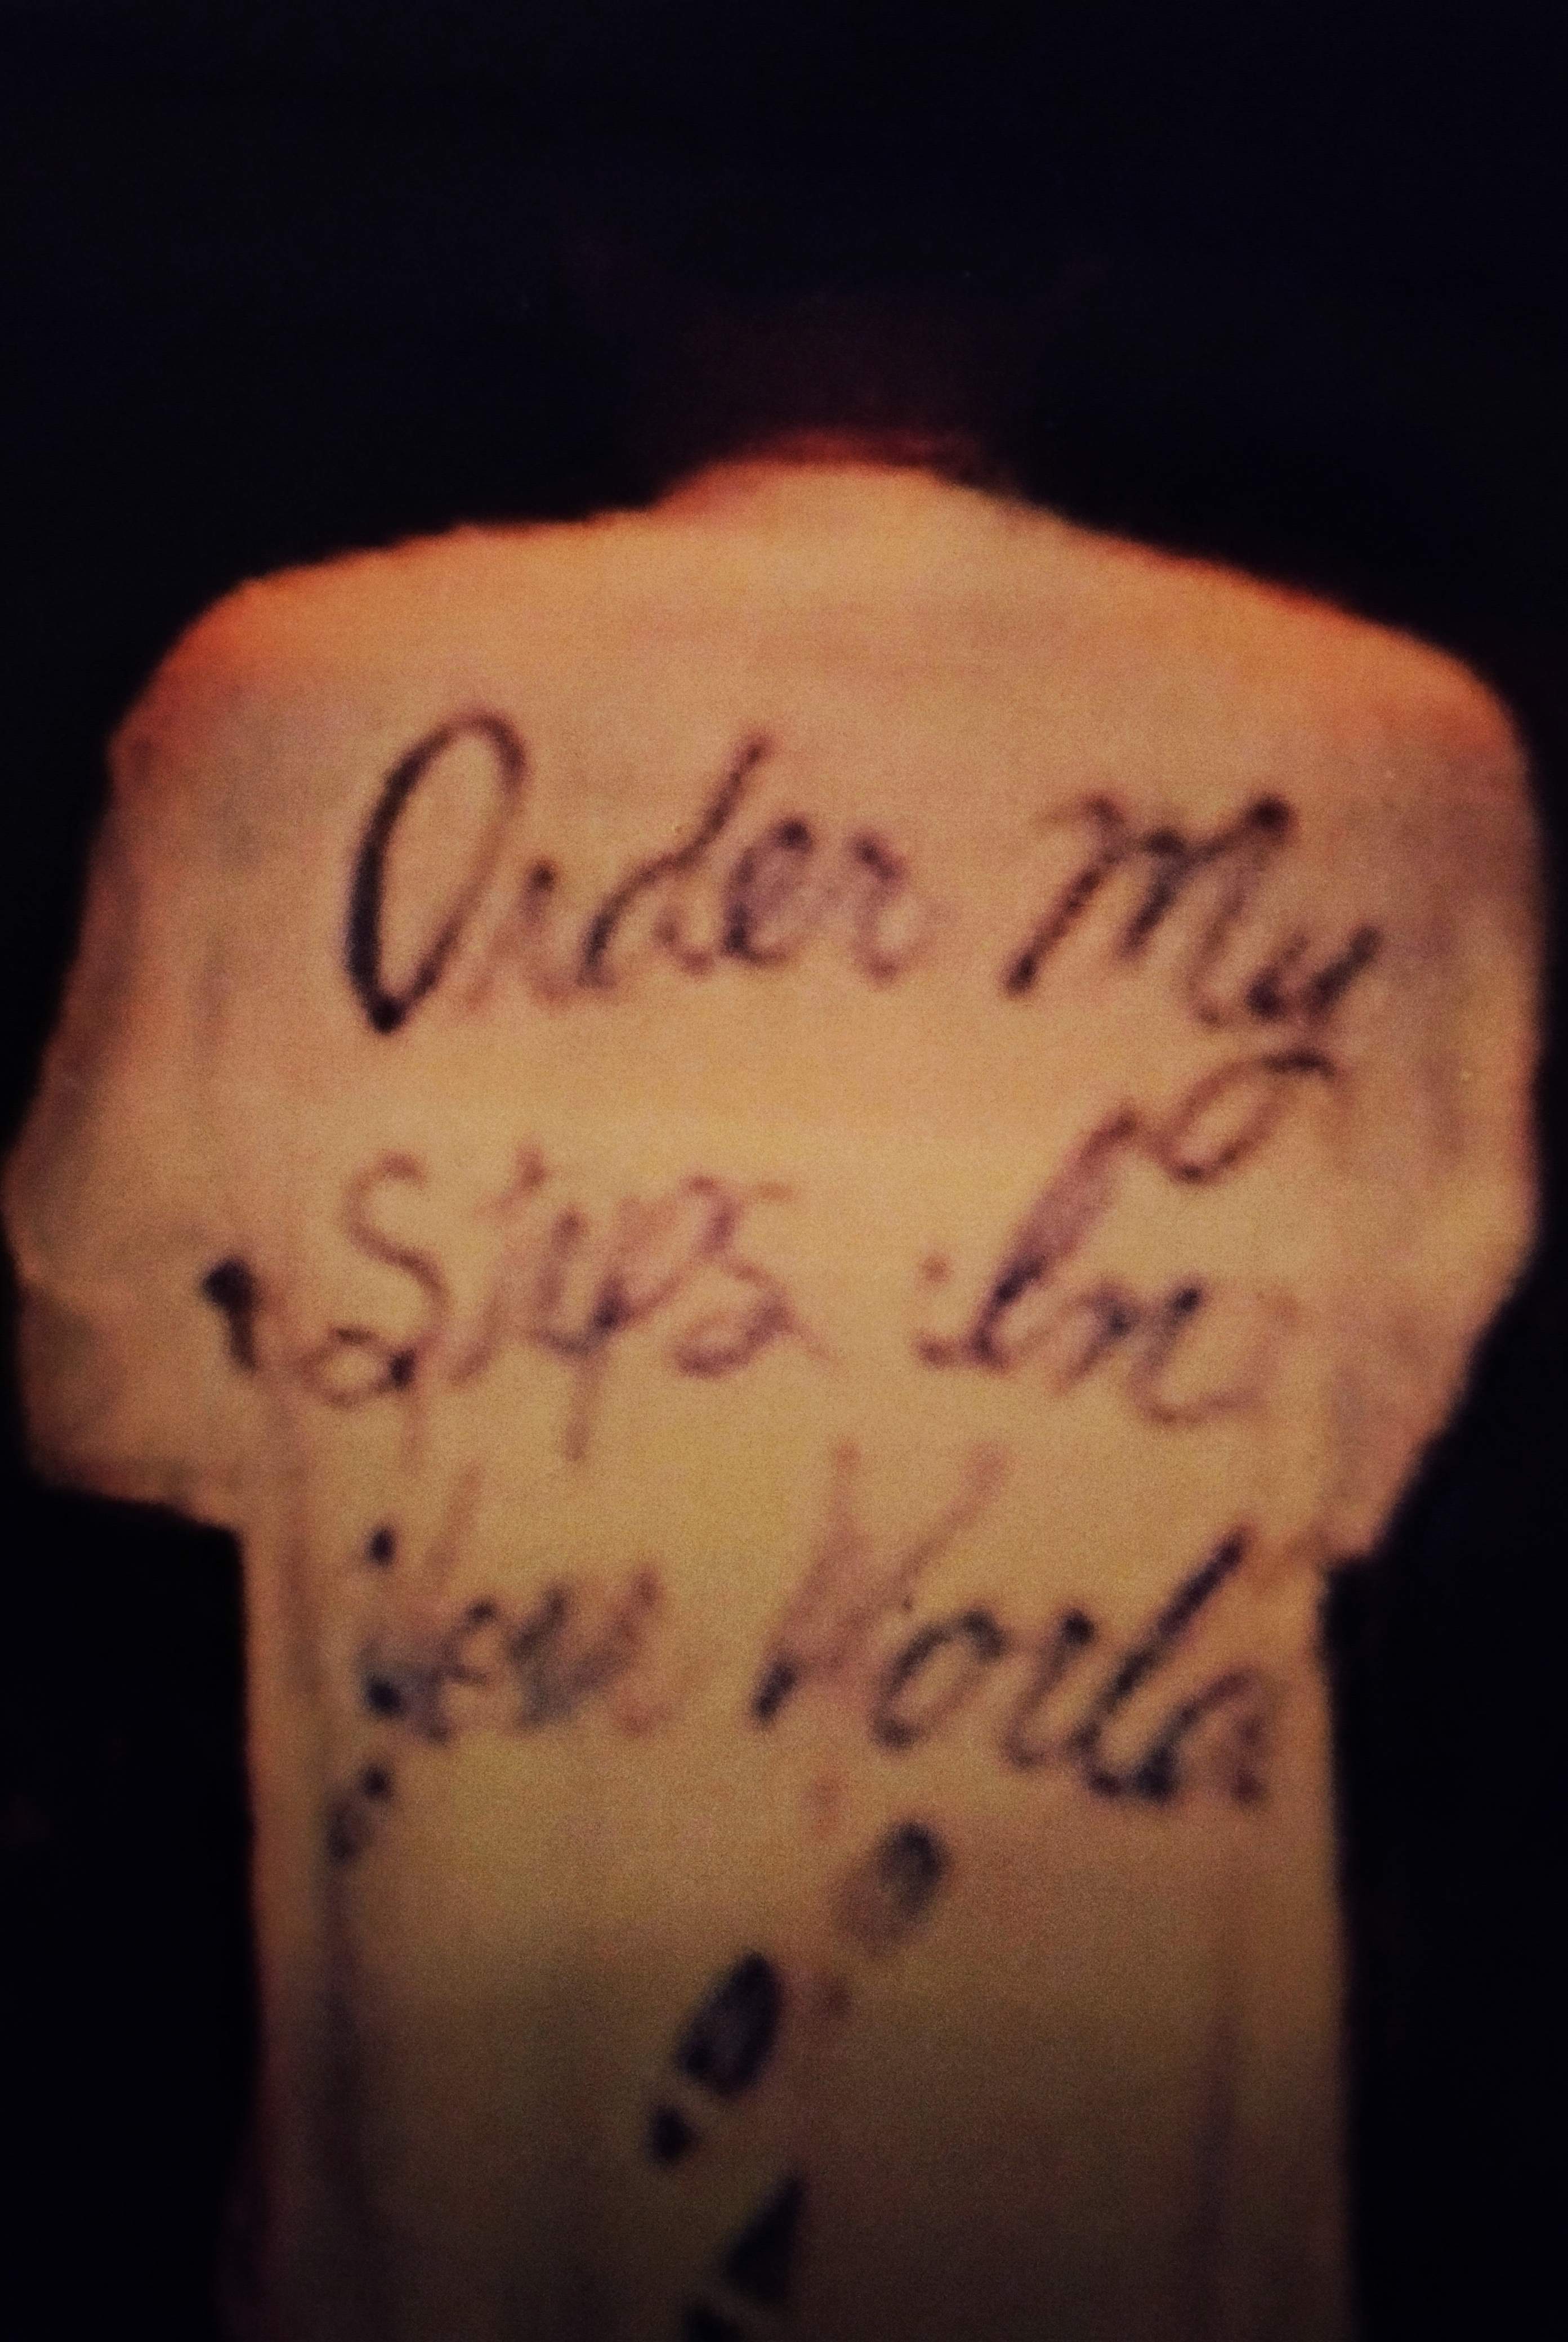 Order My
Steps In
Your Word